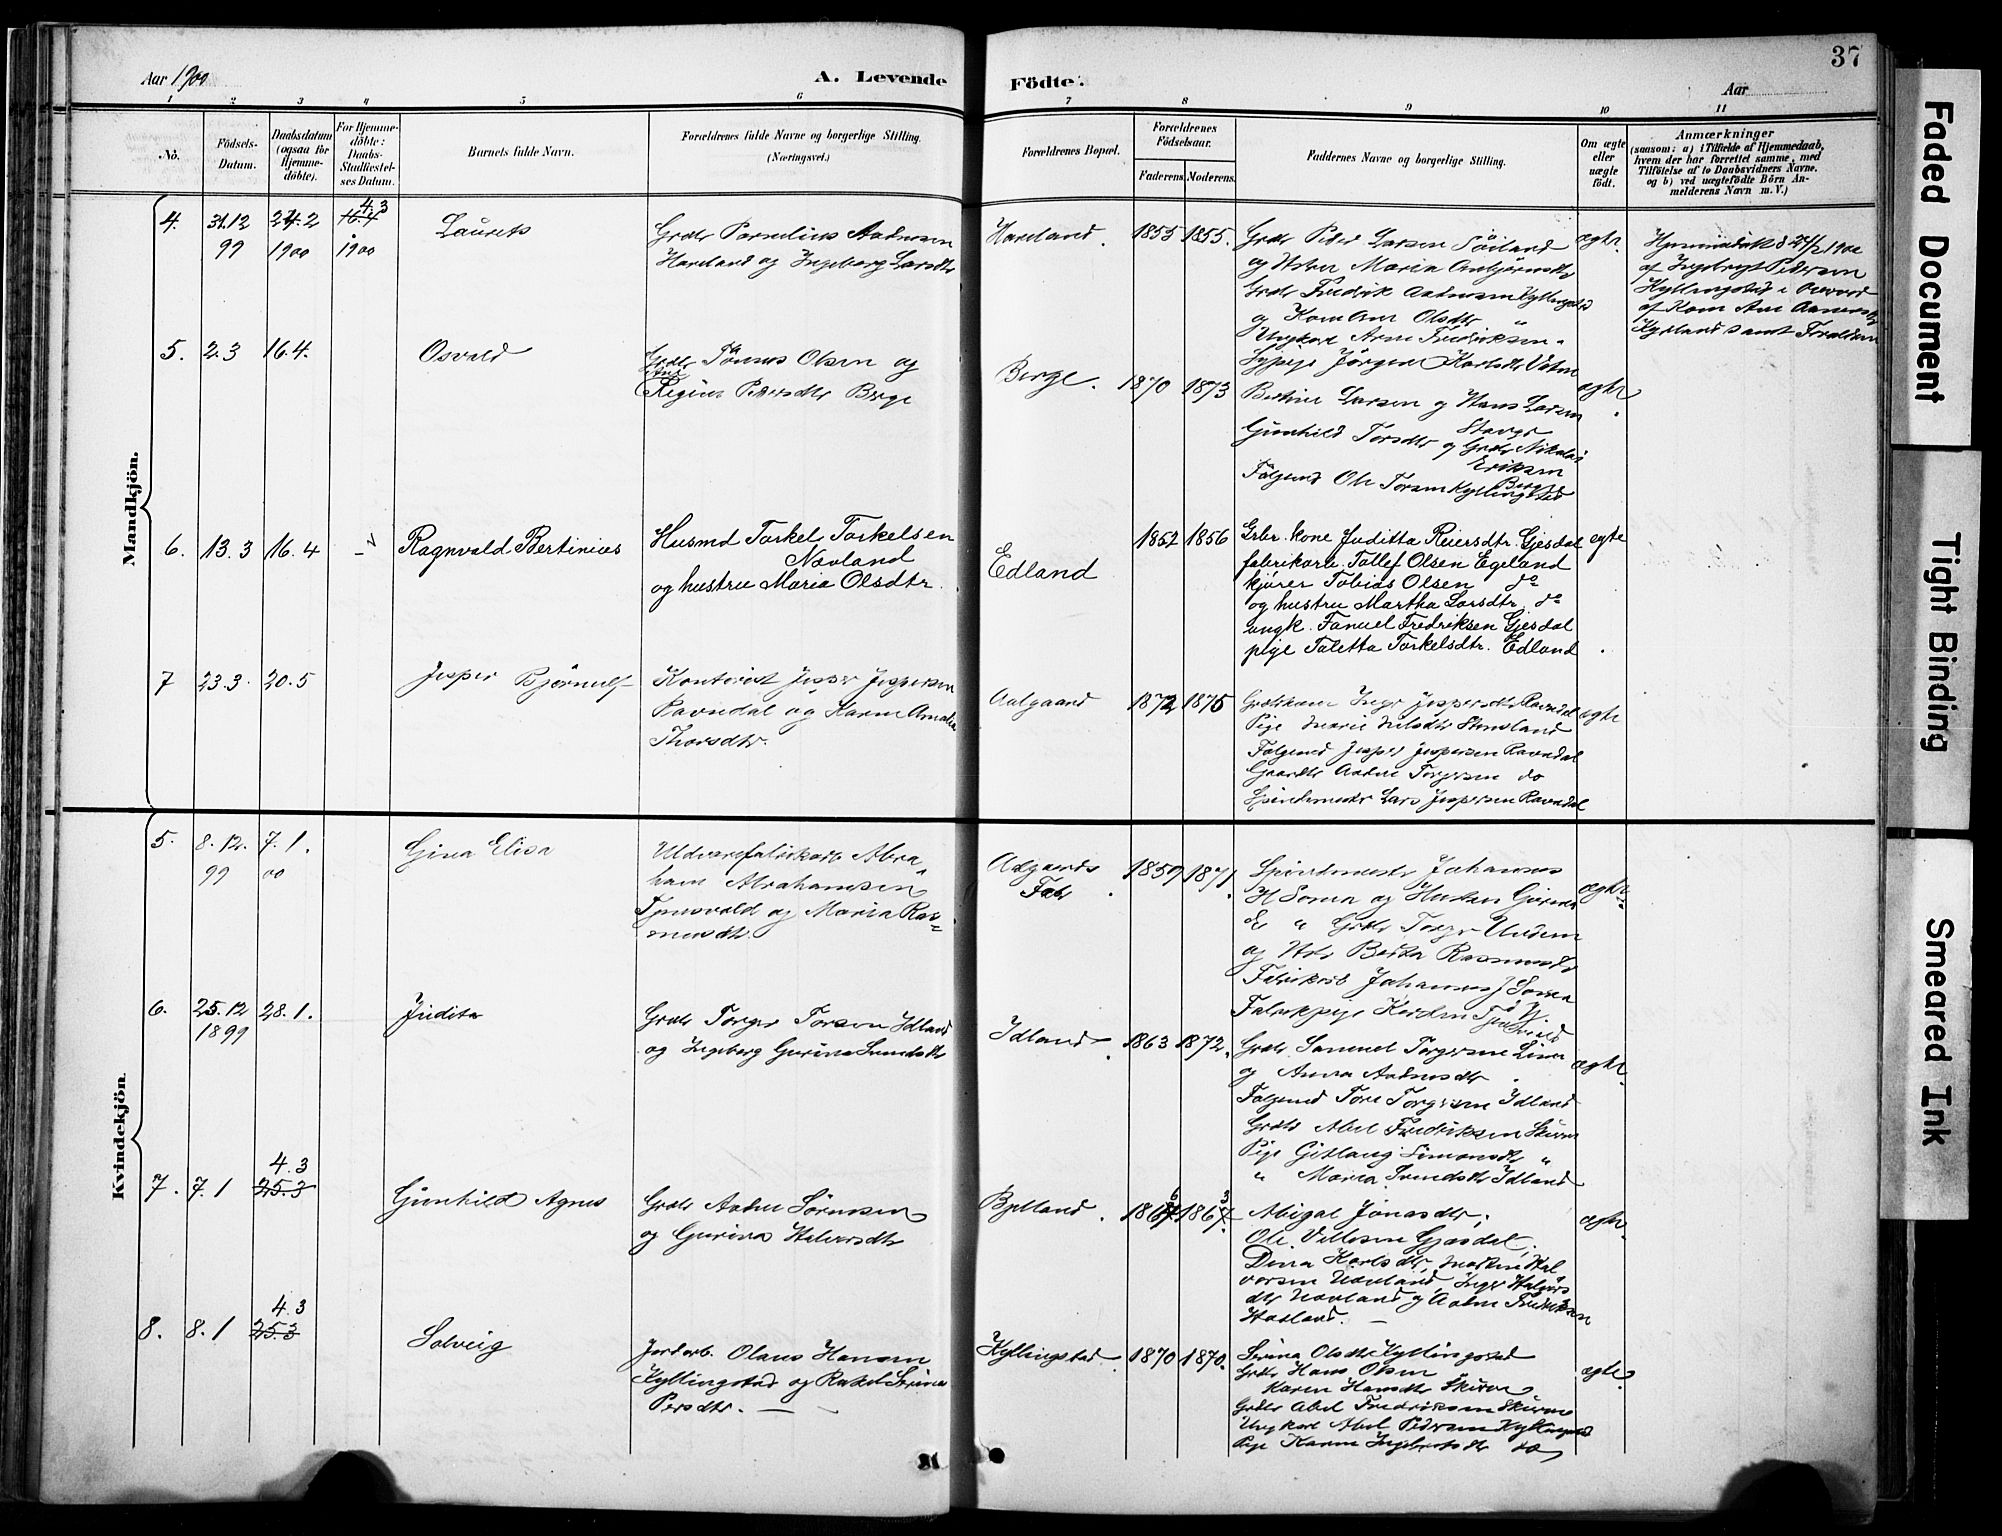 Aar 1900
A. Levende
Födte.
37
Aar
1 2 3 4 5 6 7 8 9 10 11
No.
Födsels-
Datum.
Daabsdatum
(ogsaa for
Hjemme-
döbte).
For Hjemme-
döbte:
Daabs-
Stadfæstel-
ses Datum.
Barnets fulde Navn.
Forældrenes fulde Navne og borgerlige Stilling.
(Næringsvei.)
Forældrenes Bopæl.
Forældrenes
Födselsaar.
Faderens. Moderens.
Faddernes Navne og borgerlige Stilling.
Om ægte
eller
uægte
födt.
Anmærkninger
(saasom: a) i Tilfælde af Hjemmedaab,
hvem der har forrettet samme, med
Tilföielse af to Daabsvidners Navne.
og b) ved uægtefödte Börn An-
melderens Navn m. V.)
Mandkjön.
4. 31.12
99
24.2
1900
4.3
16.4
1900
Laurits
Aadnesen
Haveland og Ingeborg Larsdtr
Haveland.
1855 1855.
Grdbr Peder Larsen
og Hustru Maria
Grdbr Fredrik Aadnesen Kyllingstad
og Olsdtr "
Ungkarl Arne Fredriksen "
ægte.
24/2 1900
af Ingebrigt Pedersen
Kyllingstad
samt Foraldrene
5. 2.3 16.4.
Osvald
Grdbr Tönnes Olsen og
Regine Pedersdtr Berge
Berge.
1870 1873
Pige Jörgine Karlsdtr
Bertine Larsen og Hans Larsen
Gunhild Torsdtr og Grdbr Nikolai
Eriksen
Berge
Ole Torsen Kyllingstad
ægte
6. 13.3 16.4
Ragnvald Bertinius
Husmd Torkel Torkelsen
Novland
og hustru Maria Olsdtr.
Edland
1852 1856
Grbr. kone Juditta Reiersdtr. Gjesdal
fabrikarb. Tollef Olsen Egeland
kjörer Tobias Olsen do
og hustru Martha Larsdtr. do
ungk. Fanuel Fredriksen Gjesdal
pige Taletta Torkelsdtr. Edland
ægte
7 23.3. 20.5
Jesper Björnulf
Kontorist Jesper Jespersen
Ravndal og Karen Amalia
Thorsdtr.
Aalgaard
1872 1875
Inger Jespersdtr Ravndal
Pige Marie Nilsdtr
Jesper Jespersen Ravndal
Gaardbr Aadne Torgersen do
Spindemester Lars Jespersen Ravndal
ægte
Kvindekjön.
5. 8.12.
99
7.1.
00
Gina Elisa
Uldvarefabrikarb Abra
ham Abrahamsen
og Maria Ras=
musdtr.
Aalgaards
Fab.
1859 1871.
Spindemester Johannes
og Hustru
Grdbr Torger Undem
og Hstr Berta Rasmusdtr
Fabrikarb Johannes
Fabrikpige
ægte.
6. 25.12
1899
28.1.
Judita
Grdbr Torger Torsen Idland
og Ingeborg Gurina Svendsdtr
Idland.
1863 1872.
Grdbr Samuel Torgersen
og Anna Aadnesdtr.
Tore Torgersen Idland
Grdbr Abel Fredriksen Skurve
Pige Simonsdtr "
" Maria Svendsdtr Idland
ægte.
7. 7.1
4.3
25.3
Gunhild Agnes
Grdbr Aadne Sörensen
og Gurina Halvorsdtr
Bjelland.
1867 1867.
6 3
Abigal Jonasdtr;
Ole Gjesdal,
Dina Karlsdtr, Hal
vorsen Novland, Inger Halvors
dtr Novland og Aadne Fredriksen
Hadland.
ægte.
8. 8.1
4.3
25.3
Solveig
Jordarb. Olaus Hansen
Kyllingstad og Rakel Serina
Persdtr.
Kyllingstad.
1870 1870.
Serina Olsdtr Kyllingstad
Grdbr Hans Olsen
Karen Hansdtr Skurve
Grdbr Abel Fredriksen Skurve
Ungkarl Abel Pedersen Kyllingstad
Pige Karen Ingebretsdtr do
ægte.
Faded Document
Tight Binding
Smeared Ink